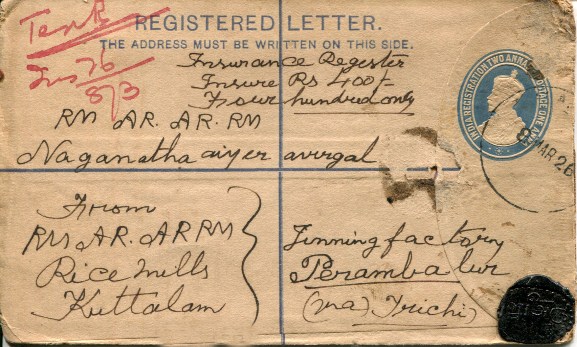 REGISTERED LETTER.
THE ADDRESS MUST BE WRITTEN ON THIS SIDE.
Ins 76
8/3
Insurance Register
Insure Rs 400/-
Four hundred only
RM AR. AR. RM
Naganatha aiyer avirgal
INDIA REGISTRATION TWO ANNAS POSTAGE ONE ANNA
8 MAR 26
From
RM AR. AR RM
Rice Mills
Kuttalam
Jinning factory
Perambalur
(via) Trichi